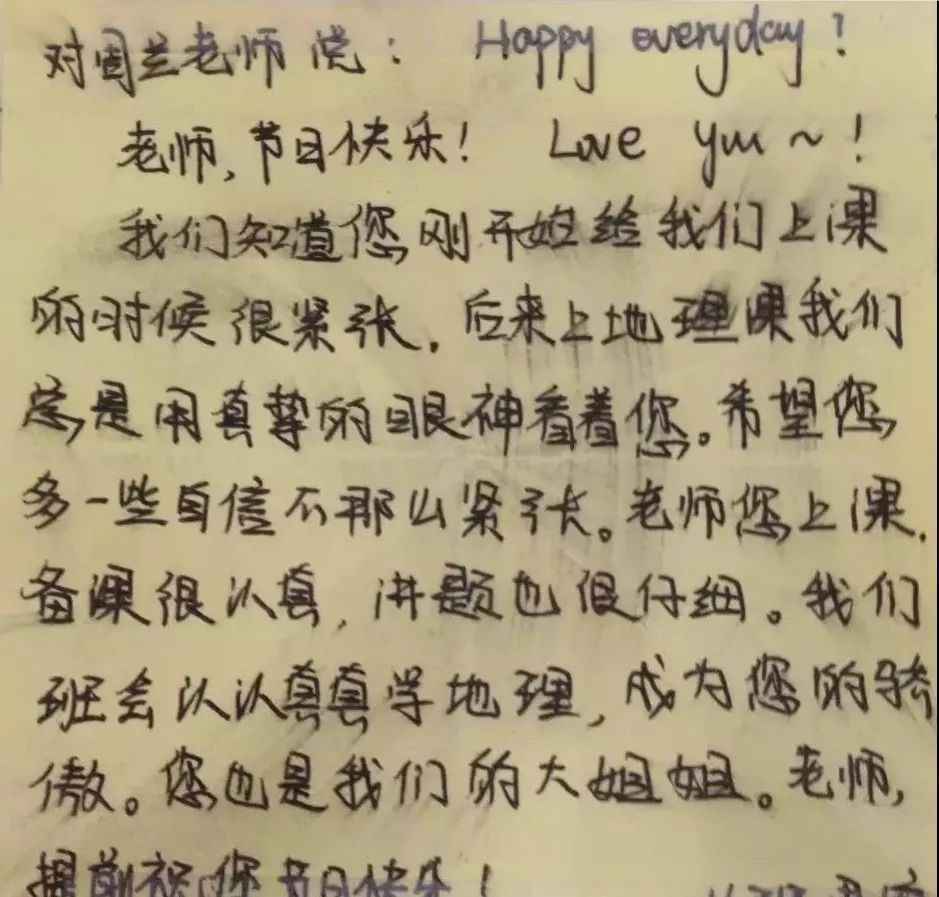 对周兰老师说： Happy everyday！
老师，节日快乐！ Love you～！
我们知道您刚开始给我们上课
的时候很紧张。后来上地理课我们
总是用真挚的眼神看着您。希望您
多一些自信不那么紧张。老师您上课，
备课很认真，讲题也很仔细。我们
班会认认真真学地理，成为您的骄
傲。您也是我们的大姐姐。老师，
提前祝您节日快乐！